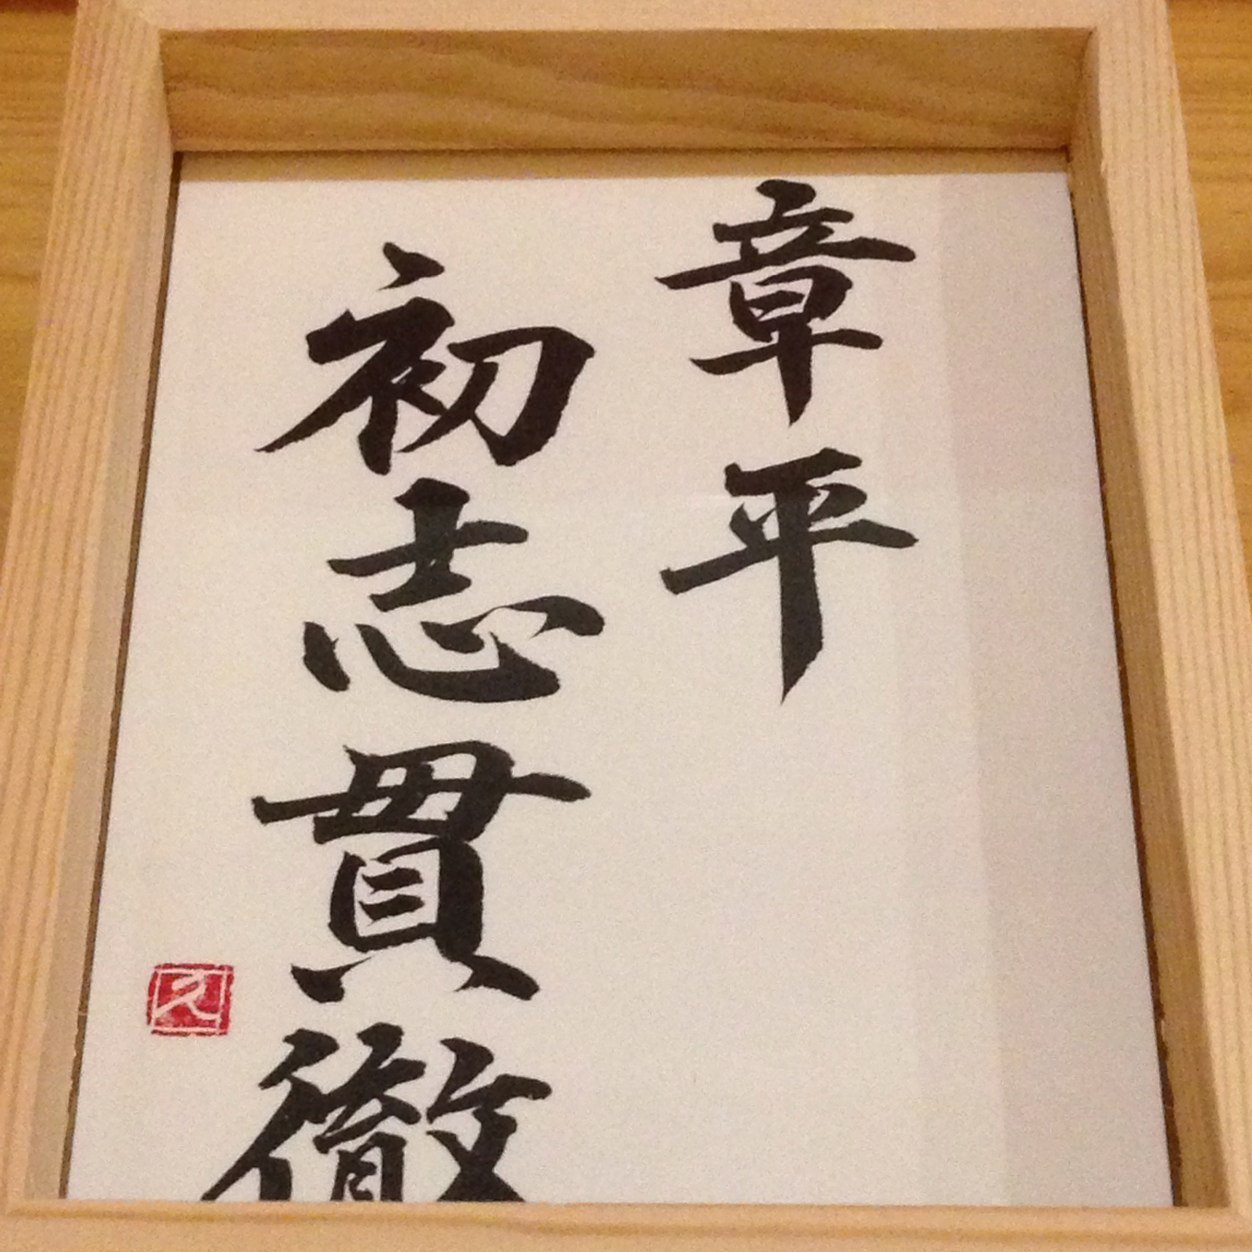 章平
初志貫徹